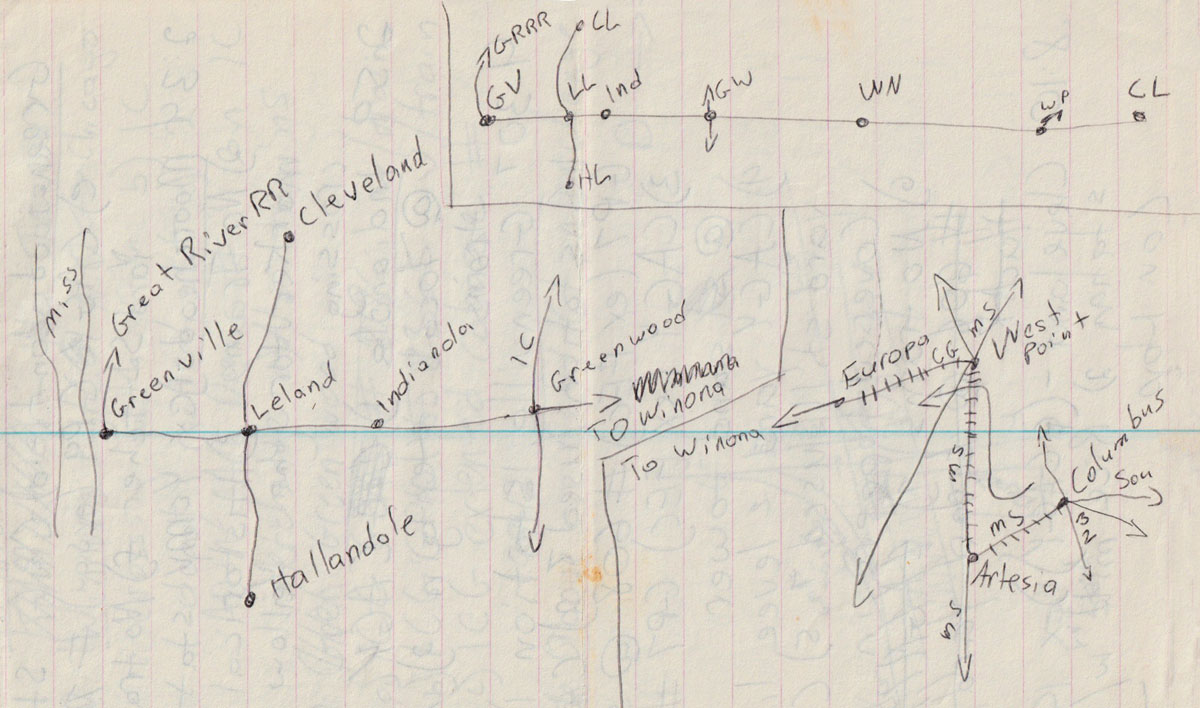 GRRR
CL
GV
LL
Ind
GW
WN
WP
CL
HL
Miss
Great River RR
Greenville
Cleveland
Leland
Indianola
IC
Greenwood
To Winona
To Winona
Hallandale
Europa
CG
MS
West
Point
MS
Columbus
Sou
MS
Artesia
MS